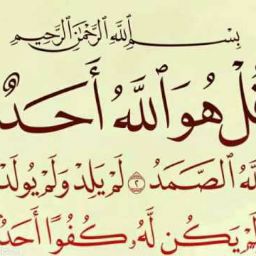 بِسْمِ ٱللَّهِ ٱلرَّحْمَٰنِ ٱلرَّحِيمِ
قُلْ هُوَ ٱللَّهُ أَحَدٌ
ٱللَّهُ ٱلصَّمَدُ ٢ لَمْ يَلِدْ وَلَمْ يُولَدْ
وَلَمْ يَكُن لَّهُۥ كُفُوًا أَحَدٌ